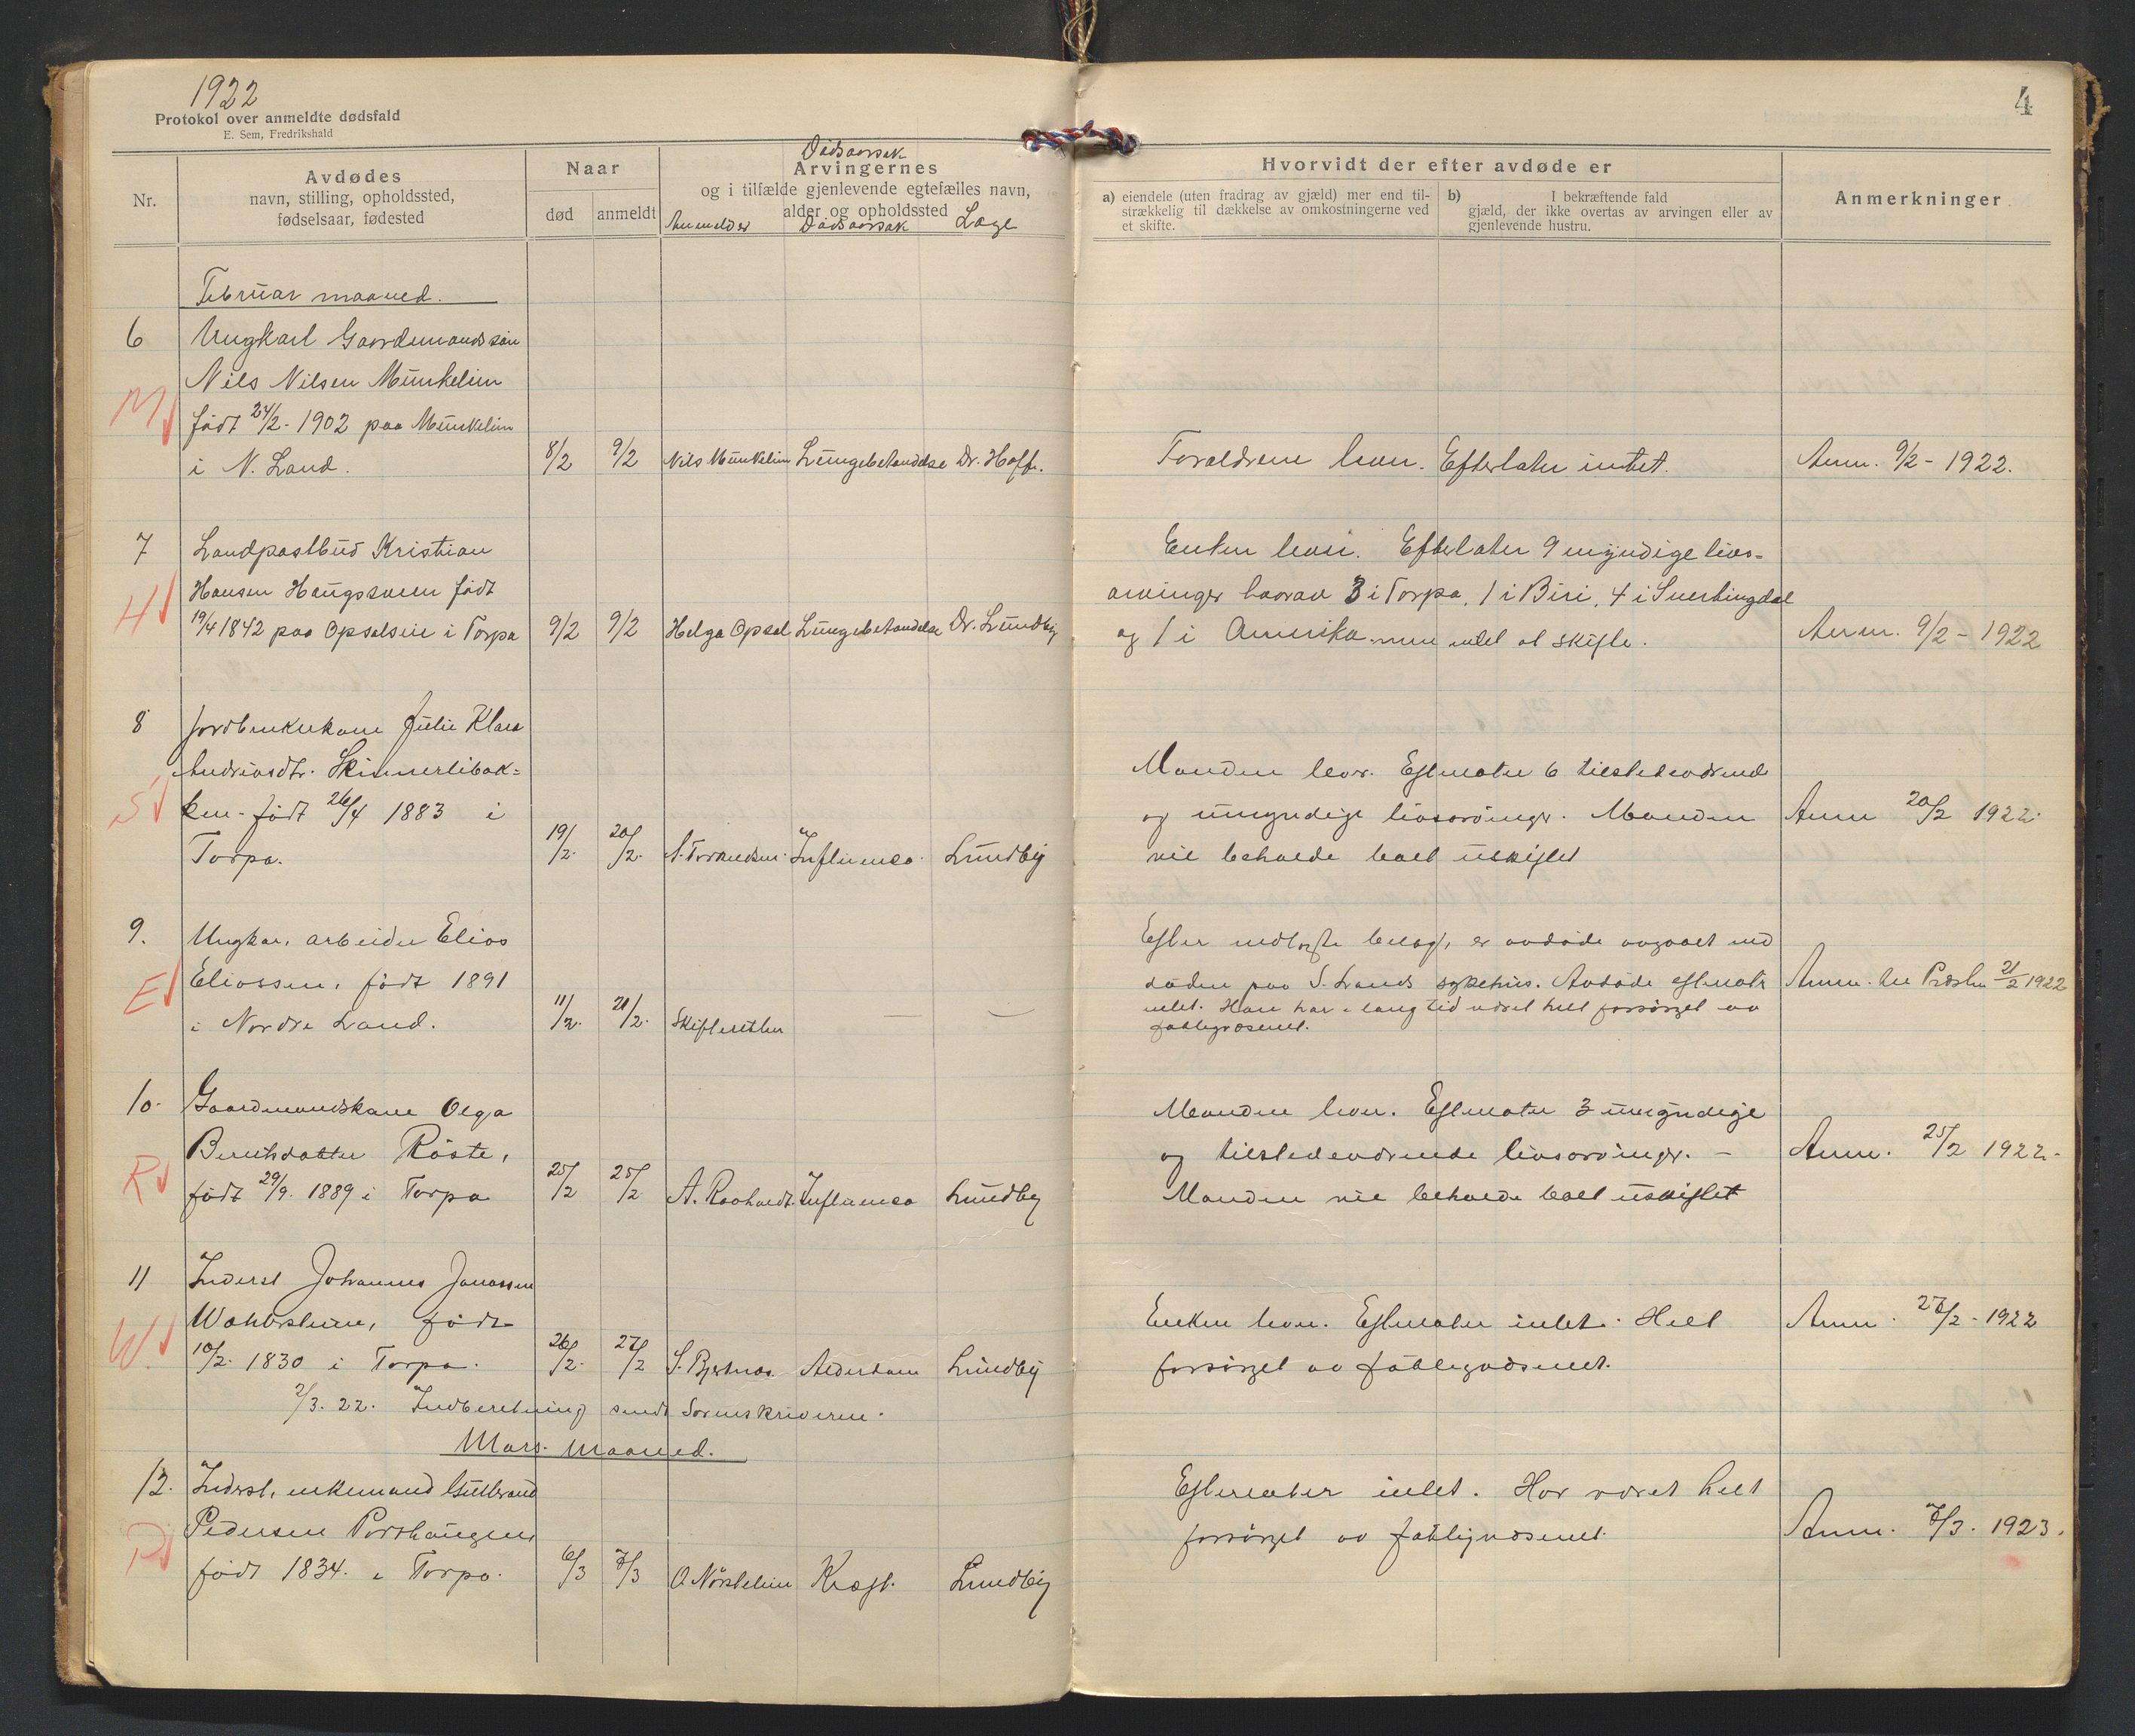 1922
Protokol over anmeldte dødsfald
E. Sem, Fredrikshald
4
Nr.
Avdødes
navn, stilling, opholdssted,
fødselsaar, fødested
Naar
død
anmeldt
Dødsaarsak
Arvingernes
og i tilfælde gjenlevende egtefælles navn,
alder og opholdssted
Anmelder Dødsaarsak Læge
Hvorvidt der efter avdøde er
a) eiendele (uten fradrag av gjæld) mer end til-
strækkelig til dækkelse av omkostningerne ved
et skifte.
b) I bekræftende fald
gjæld, der ikke overtas av arvingen eller av
gjenlevende hustru.
Anmerkninger
Februar maaned.
6 Ungkarl Gaardmandssøn
Nils Nilsen Munkelien
M
født 24/2-1902 paa Munkelien
i N. Land. 8/2 9/2 Nils Munkelien Lungebetændelse Dr. Hoff. Forældrene lever. Efterlater intet. Anm. 9/2-1922.
7 Landpostbud Kristian Enken lever. Efterlater 9 myndige livs-
H
Hansen Haugsveen født arvinger hvorav 3 i Torpa, 1 i Biri, 4 i Snertingdal
19/4 1842 paa Opsalseie i Torpa 9/2 9/2 Helga Opsal Lungebetændelse Dr. Lundby og 1 i Amerika. intet at skifte. Anm. 9/2-1922
8 Jordbrukerkone Julie Klara
Andreasdtr. Skinnerlibak- Manden lever. Efterlater 6 tilstedeværende
S
ken-født 26/4 1883 i og umyndige livsarvinger. Manden Anm 20/2 1922.
Torpa. 19/2. 20/2. Influensa. Lundby vil beholde boet uskiftet
9. Ungkar, arbeider Elias Efter indløpte er avdøde avgaaet ved
E
Eliassen, født 1891 døden paa S. Lands sykehus. Avdøde efterlater Anm. 21/2 1922
i Nordre Land. 11/2. 21/2. Skifteretten — — intet. Han har i lang tid været helt forsørget av
fattigvæsenet.
10. Gaardmandskone Olga Manden lever. Efterlater 3 umyndige
Berntsdatter Røste, og tilstedeværende livsarvinger. – Anm. 25/2 1922.
R
født 29/9. 1889 i Torpa 25/2 25/2 Influensa Lundby Manden vil beholde boet uskiftet
11 Inderst Johannes Jonassen
W.
født Enken lever. Efterlater intet. Helt Anm. 27/2-1922
10/2. 1830 i Torpa. 26/2. 27/2 Alderdom Lundby forsørget av fattigvæsenet.
2/3. 22. Indberetning sendt Sorenskriveren.
Mars. Maaned.
12. Inderst, enkemand Gulbrand Efterlater intet. Har været helt
P
Pedersen Porshaugen, forsørget av fattigvæsenet. Anm. 7/3. 1923.
født 1834. i Torpa. 6/3 7/3 Kræft. Lundby